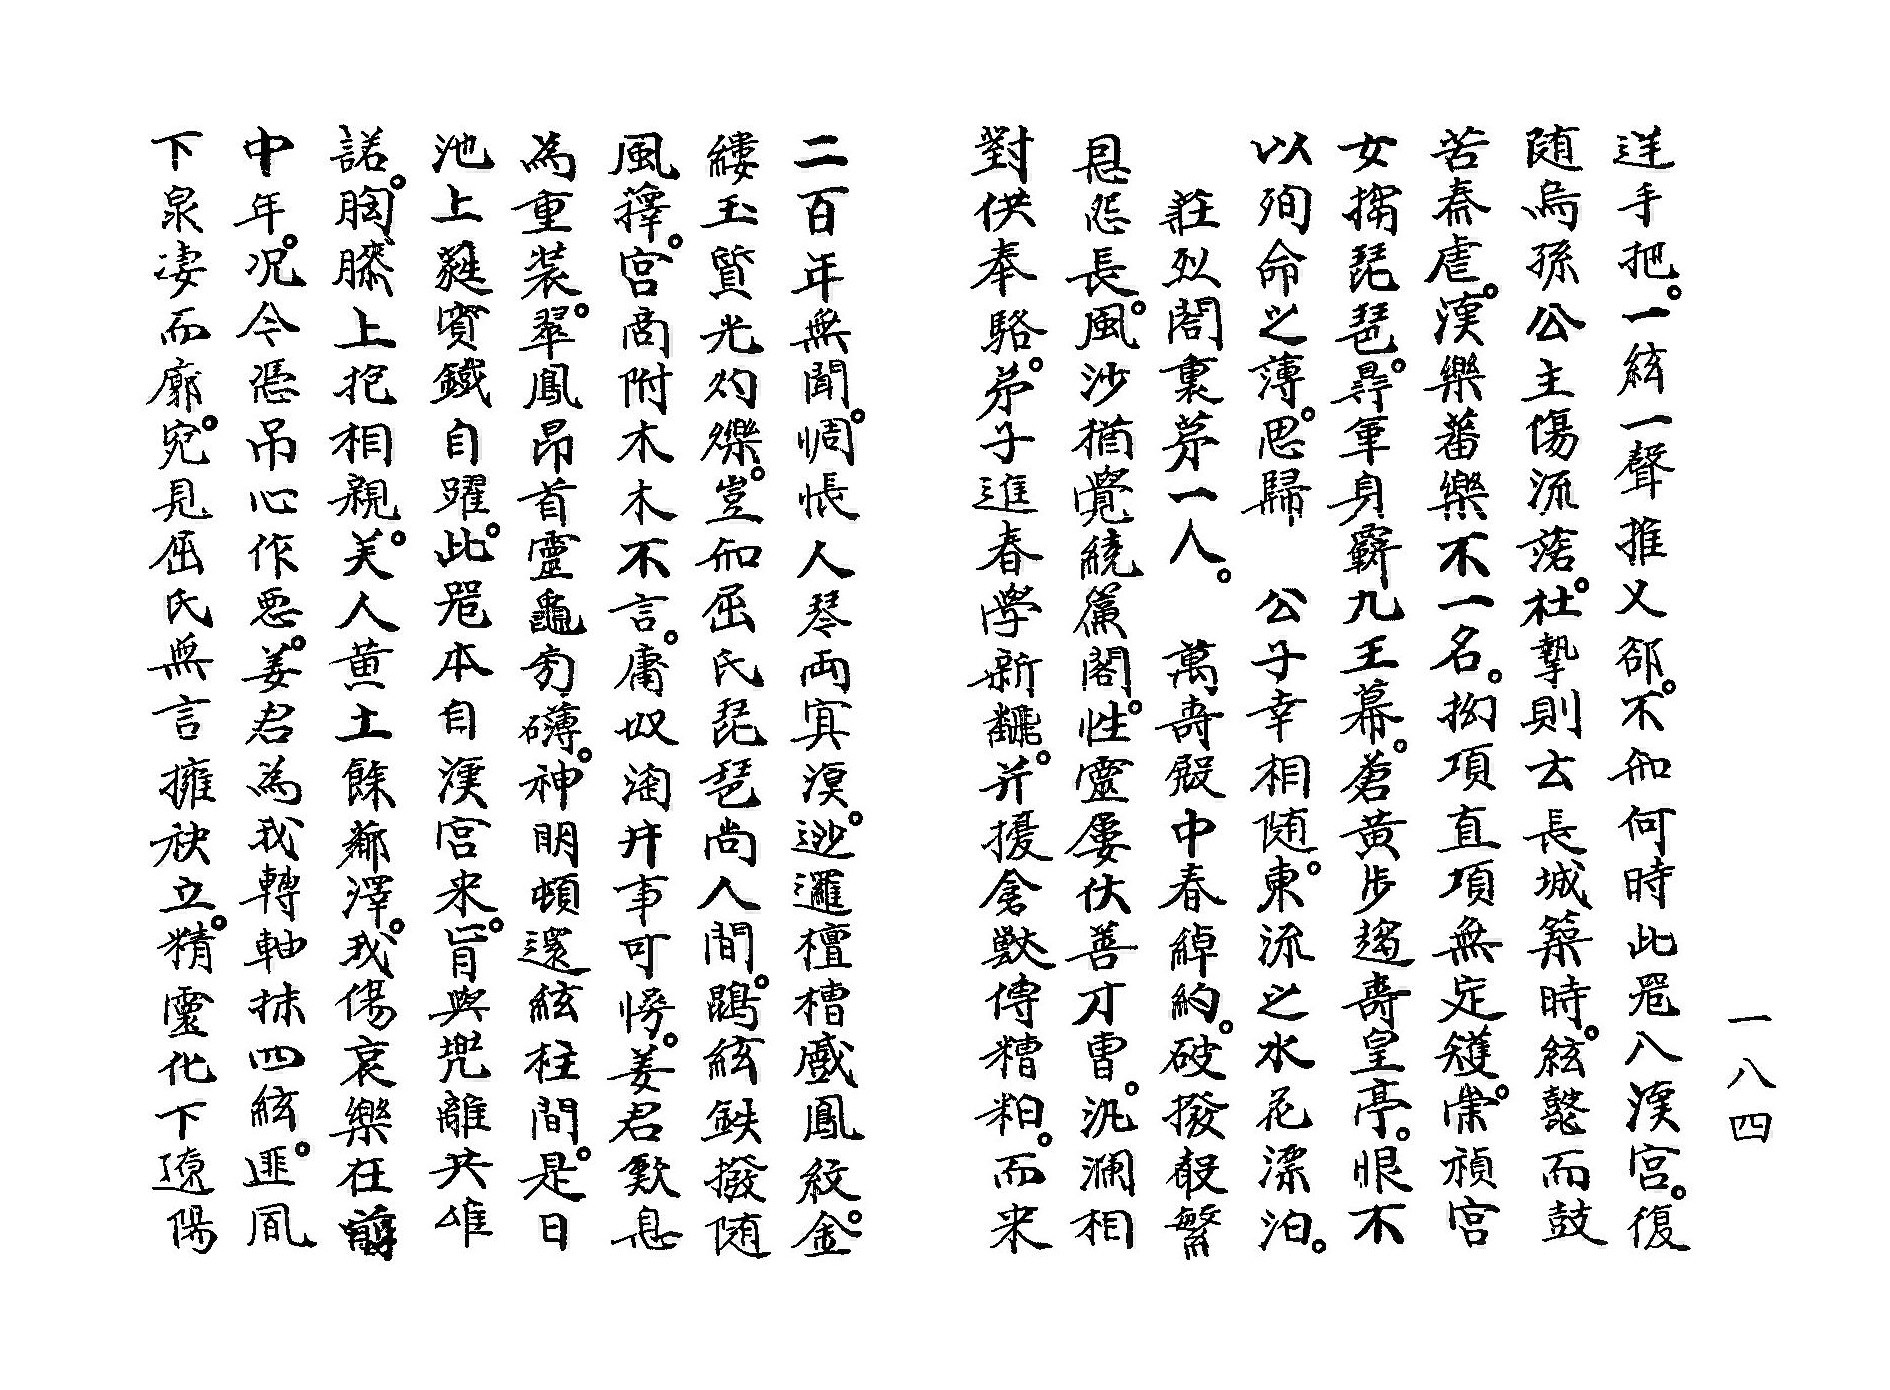 一八四
逆手把。一絃一聲推又郤。不知何時此器入漢宮。復
随烏孫公主傷流落。杜摯則去長城築時。絃鼗而鼓
苦秦虐。漢樂蕃樂不一名。拗項直項無定矱。常禎宮
女搊琵琶。尋軍身窮九王幕。蒼黄步趨壽皇亭。恨不
以殉命之薄。思歸 公子幸相随。東流之水花漂泊。
莊烈閣裏第一人。 萬壽殿中春綽約。破撥殽繁
恩怨長。風沙猶覺繞簾閣。性靈屢伏善才曹。汎瀾相
對供奉駱。弟子進春學新飜。并擾禽獸傳糟粕。而来
二百年無聞。惆悵人琴両寞漠。逊邏檀槽蹙鳳紋。金
縷玉質光灼爍。豈知屈氏琵琶尚人間。鵾絃鉄撥随
風蘀。宮商附木木不言。庸奴淘井事可愕。姜君歎息
為重装。翠鳳昂首靈龜旁礴。神明頓還絃柱間。是日
池上蕤賓鐵自躍。此器本自漢宮来。肯與兜離共唯
諾。胸膝上抱相親。美人黄土餘薌澤。我傷哀樂在
中年。况今憑吊心作惡。姜君為我轉軸抹四絃。匪風
下泉凄而廓。宛見屈氏無言擁袂立。精靈化下遼陽